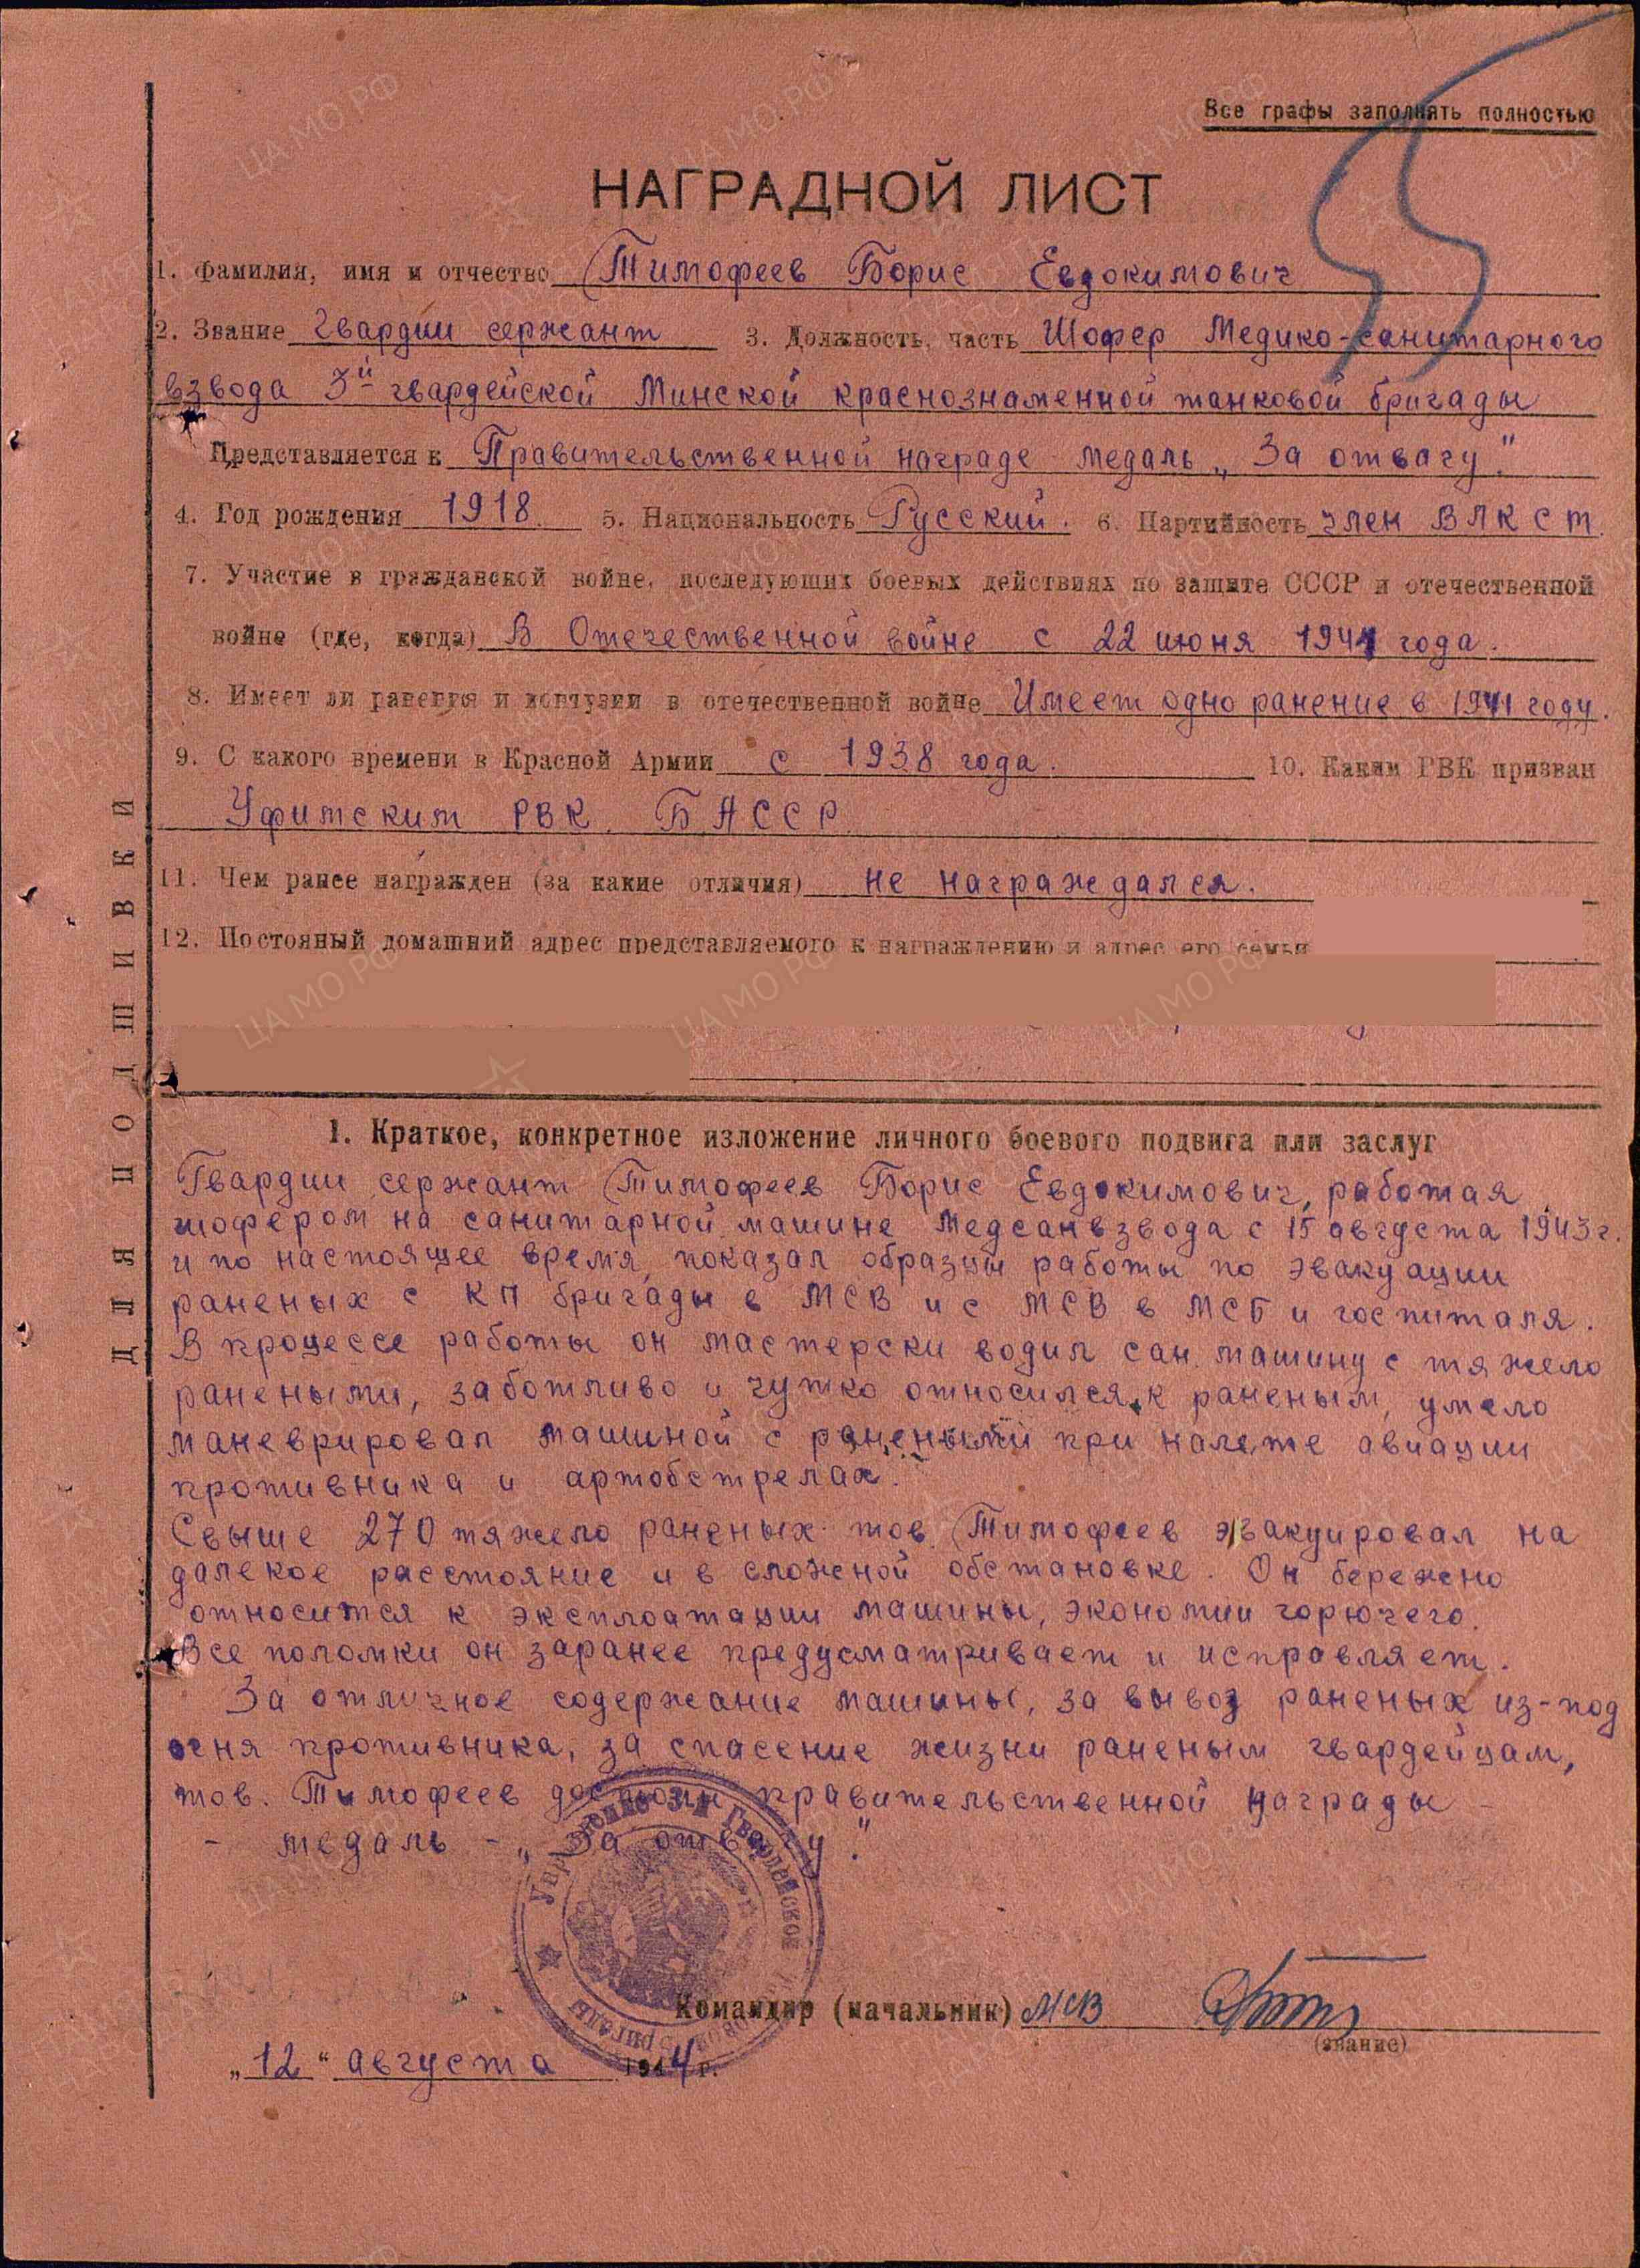 Все графы заполнять полностью
НАГРАДНОЙ ЛИСТ
1. Фамилия, имя и отчество Тимофеев Борис Евдокимович
2. Звание Гвардии сержант 3. Должность, часть Шофер Медико-санитарного
взвода 3й гвардейской Минской краснознаменной танковой бригады
Представляется к Правительственной награде медаль „За отвагу".
4. Год рождения 1918. 5. Национальность Русский. 6. Партийность член ВЛКСМ.
7. Участие в гражданской войне, последующих боевых действиях по защите СССР и отечественной
войне (где, когда) В Отечественной войне с 22 июня 1941 года.
8. Имеет ли ранения и контузии в отечественной войне Имеет одно ранение в 1941 году.
9. С какого времени в Красной Армии с 1938 года. 10. Каким РВК призван
Уфимским РВК. БАССР.
11. Чем ранее награжден (за какие отличия) не награждался.
12. Постоянный домашний адрес представляемого к награждению и адрес его семьи
1. Краткое, конкретное изложение личного боевого подвига или заслуг
Гвардии сержант Тимофеев Борис Евдокимович, работая
шофером на санитарной машине Медсанвзвода с 15 августа 1943г.
и по настоящее время, показал образцы работы по эвакуации
раненых с КП бригады в МСВ и с МСВ в МСБ и госпиталя.
В процессе работы он мастерски водил сан. машину с тяжело
ранеными, заботливо и чутко относился к раненым, умело
маневрировал машиной с ранеными при налете авиации
противника и артобстрелах.
Свыше 270 тяжело раненых тов. Тимофеев эвакуировал на
далекое расстояние и в сложной обстановке. Он бережно
относится к эксплоатации машины, экономии горючего.
Все поломки он заранее предусматривает и исправляет.
За отличное содержание машины, за вывоз раненых из-под
огня противника, за спасение жизни раненым гвардейцам,
тов. Тимофеев достоин правительственной награды -
- медаль - „За отвагу".
Командир (начальник) МСВ
(звание)
„12" августа 1944 г.
ДЛЯ ПОДШИВКИ
ЦА МО РФ